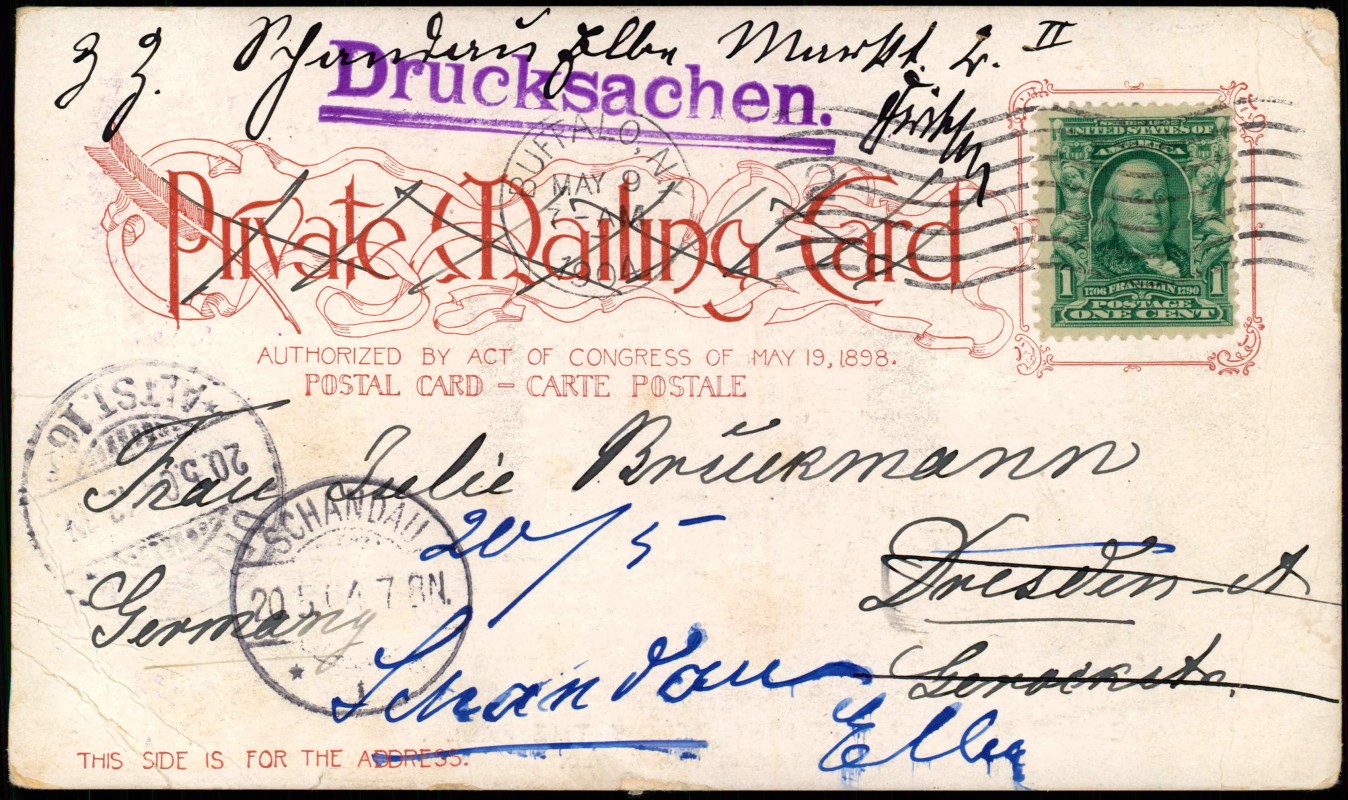 z. Z. Schandau Elbe Markt. 2. II
Drucksachen.
BUFFALO, N.Y.
MAY 9
7-AM
1904
SERIES 1902
UNITED STATES OF
AMERICA
1 1706 FRANKLIN 1790 1
POSTAGE
ONE CENT
Private Mailing Card
AUTHORIZED BY ACT OF CONGRESS OF MAY 19, 1898.
POSTAL CARD – CARTE POSTALE
ALTST. 16
20.5.
Frau Julie Brückmann
SCHANDAU
20 5 04 7-8N.
20/5
Dresden-A
Germany
Gerockstr.
Schandau
Elbe
THIS SIDE IS FOR THE ADDRESS.